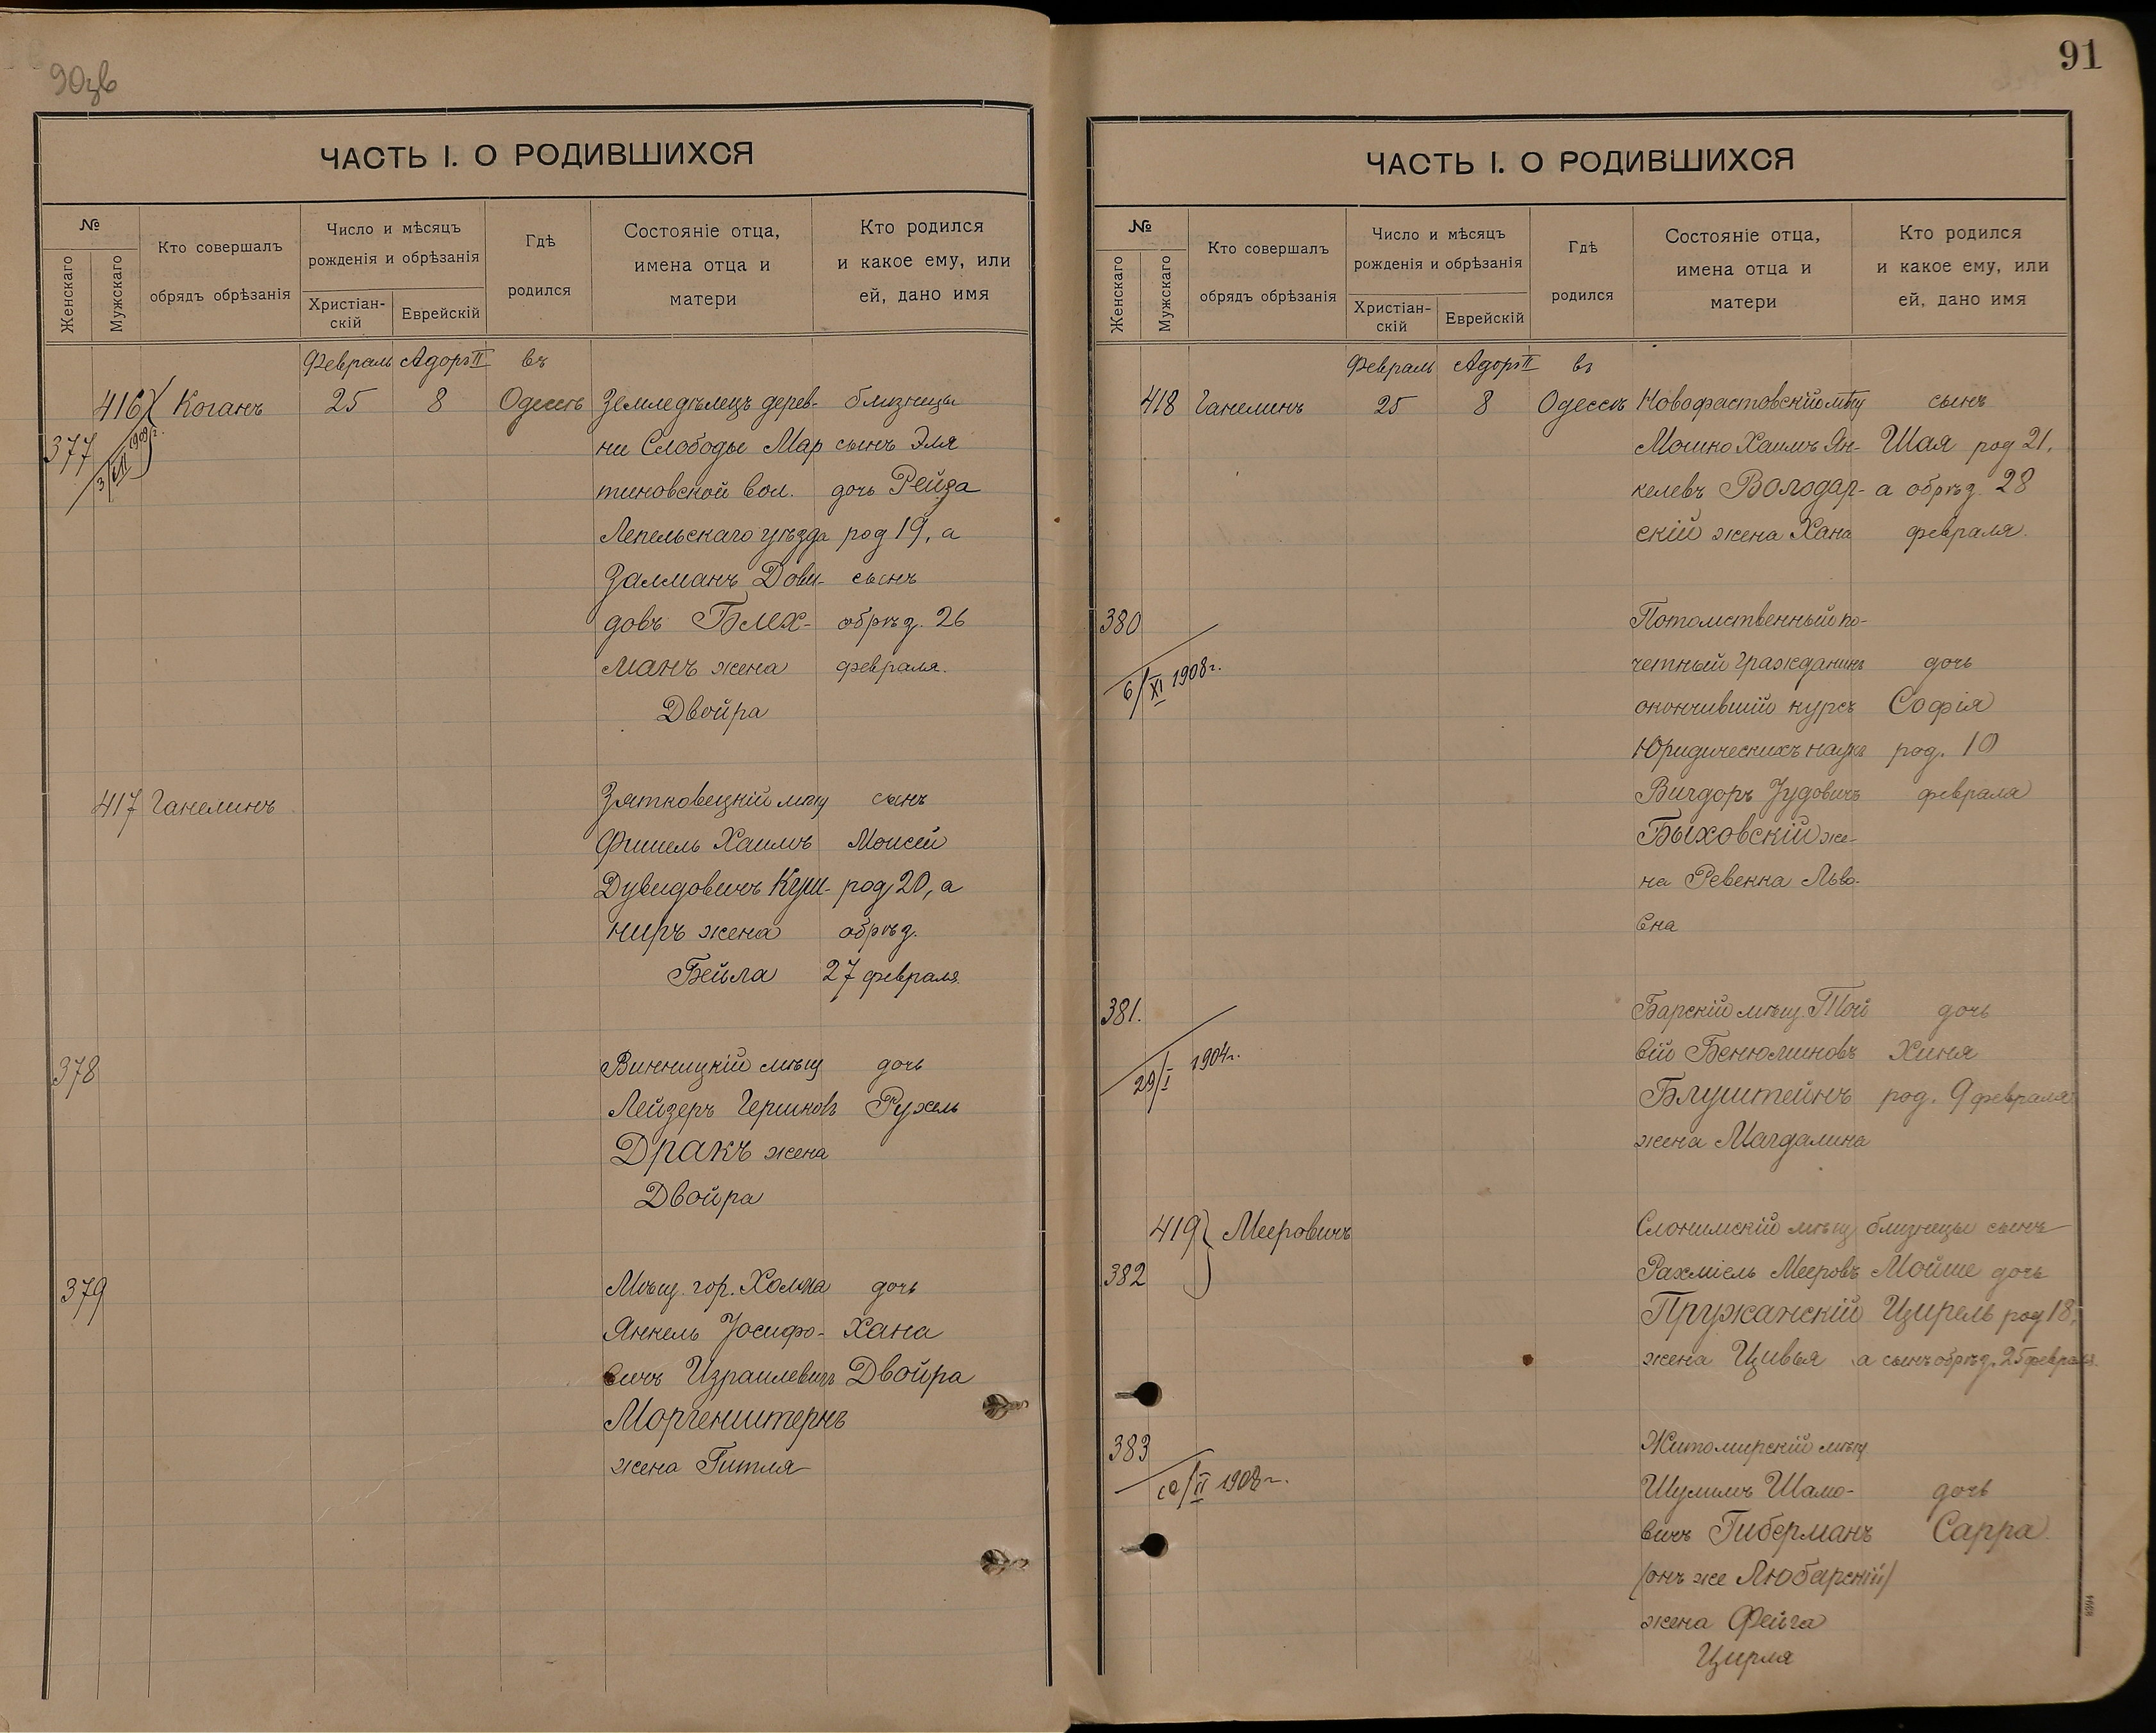 90зв
ЧАСТЬ I. О РОДИВШИХСЯ
№
Женскаго
Мужскаго
Кто совершалъ
обрядъ обрѣзанія
Число и мѣсяцъ
рожденія и обрѣзанія
Христіан-
скій
Еврейскій
Гдѣ
родился
Состояніе отца,
имена отца и
матери
Кто родился
и какое ему, или
ей, дано имя
Февраль Адоръ II въ
416 Коганъ 25 8 Одессѣ Земледѣлецъ дерев- близнецы
377 ни Слободы Мар сынъ Эля
тиновской вол. дочь Рейза
Лепельскаго уѣзда род 19, а
Залманъ Дови- сынъ
довъ Блех- обрѣз. 26
манъ жена февраля.
Двойра
417 Ганелинъ Зятковецкій мѣщ сынъ
Фишель Хаимъ Моисей
Дувидовичъ Куш- род 20, а
ниръ жена обрѣз.
Бейла 27 февраля.
378 Винницкій мѣщ дочь
Лейзеръ Гершковъ Рухель
Дракъ жена
Двойра
379 Мѣщ. гор. Холма дочь
Янкель Іосифо- Хана
вичъ Израилевичъ Двойра
Моргенштернъ
жена Гитля
91
ЧАСТЬ I. О РОДИВШИХСЯ
№
Женскаго
Мужскаго
Кто совершалъ
обрядъ обрѣзанія
Число и мѣсяцъ
рожденія и обрѣзанія
Христіан-
скій
Еврейскій
Гдѣ
родился
Состояніе отца,
имена отца и
матери
Кто родился
и какое ему, или
ей, дано имя
Февраль Адоръ II въ
418 Ганелинъ 25 8 Одессѣ Новофастовскій мѣщ сынъ
Мошко Хаимъ Ян- Шая род 21,
келевъ Володар- а обрѣз. 28
скій жена Хана февраля.
380 Потомственный по-
6/XI 1908 г. четный гражданинъ дочь
окончившій курсъ Софія
Юридическихъ наукъ род. 10
Вигдоръ Іудовичъ февраля
Быховскій же-
на Ревекка Льво-
вна
381. Барскій мѣщ. Той дочь
29/I 1904 г. вій Бенюминовъ Хиня
Блуштейнъ род. 9 февраля
жена Магдалина
419 Мееровичъ Слонимскій мѣщ близнецы сынъ
382 Рахміель Мееровъ Мойше дочь
Пружанскій Цирель род 18,
жена Цивья а сынъ обрѣз. 25 февраля.
383 Житомирскій мѣщ
Шулимъ Шамо- дочь
вичъ Гиберманъ Сарра
/онъ же Любарскій/
жена Фейга
Цирля